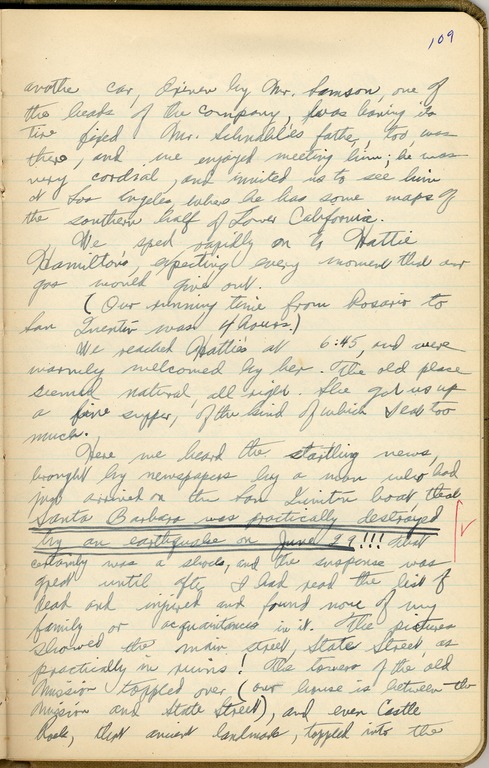 109
another car, driven by Mr. Samson, one of
the heads of the company, was having its
tire fixed. Mr. Schnable's father, too, was
there, and we enjoyed meeting him; he was
very cordial, and invited us to see him
at Los Angeles, where he has some maps of
the southern half of Lower California.
We sped rapidly on to Hattie
Hamilton's, expecting every moment that our
gas would give out.
(Our running time from Rosario to
San Quentin was 4 hours.)
We reached Hattie's at 6:45, and were
warmly welcomed by her. The old place
seemed natural, all right. She got us up
a fine supper, of the kind of which I eat too
much.
Here we heard the startling news,
brought by newspapers by a man who had
just arrived on the San Quintin boat, that
Santa Barbara was practically destroyed
by an earthquake on June 29!!! That
certainly was a shock, and the suspense was
great until after I had read the list of
dead and injured and found none of my
family or acquaintances in it. The pictures
showed the main street, State Street, as
practically in ruins! The towers of the old
Mission toppled over (our house is between the
Mission and State Street), and even Castle
Rock, that ancient landmark, toppled into the